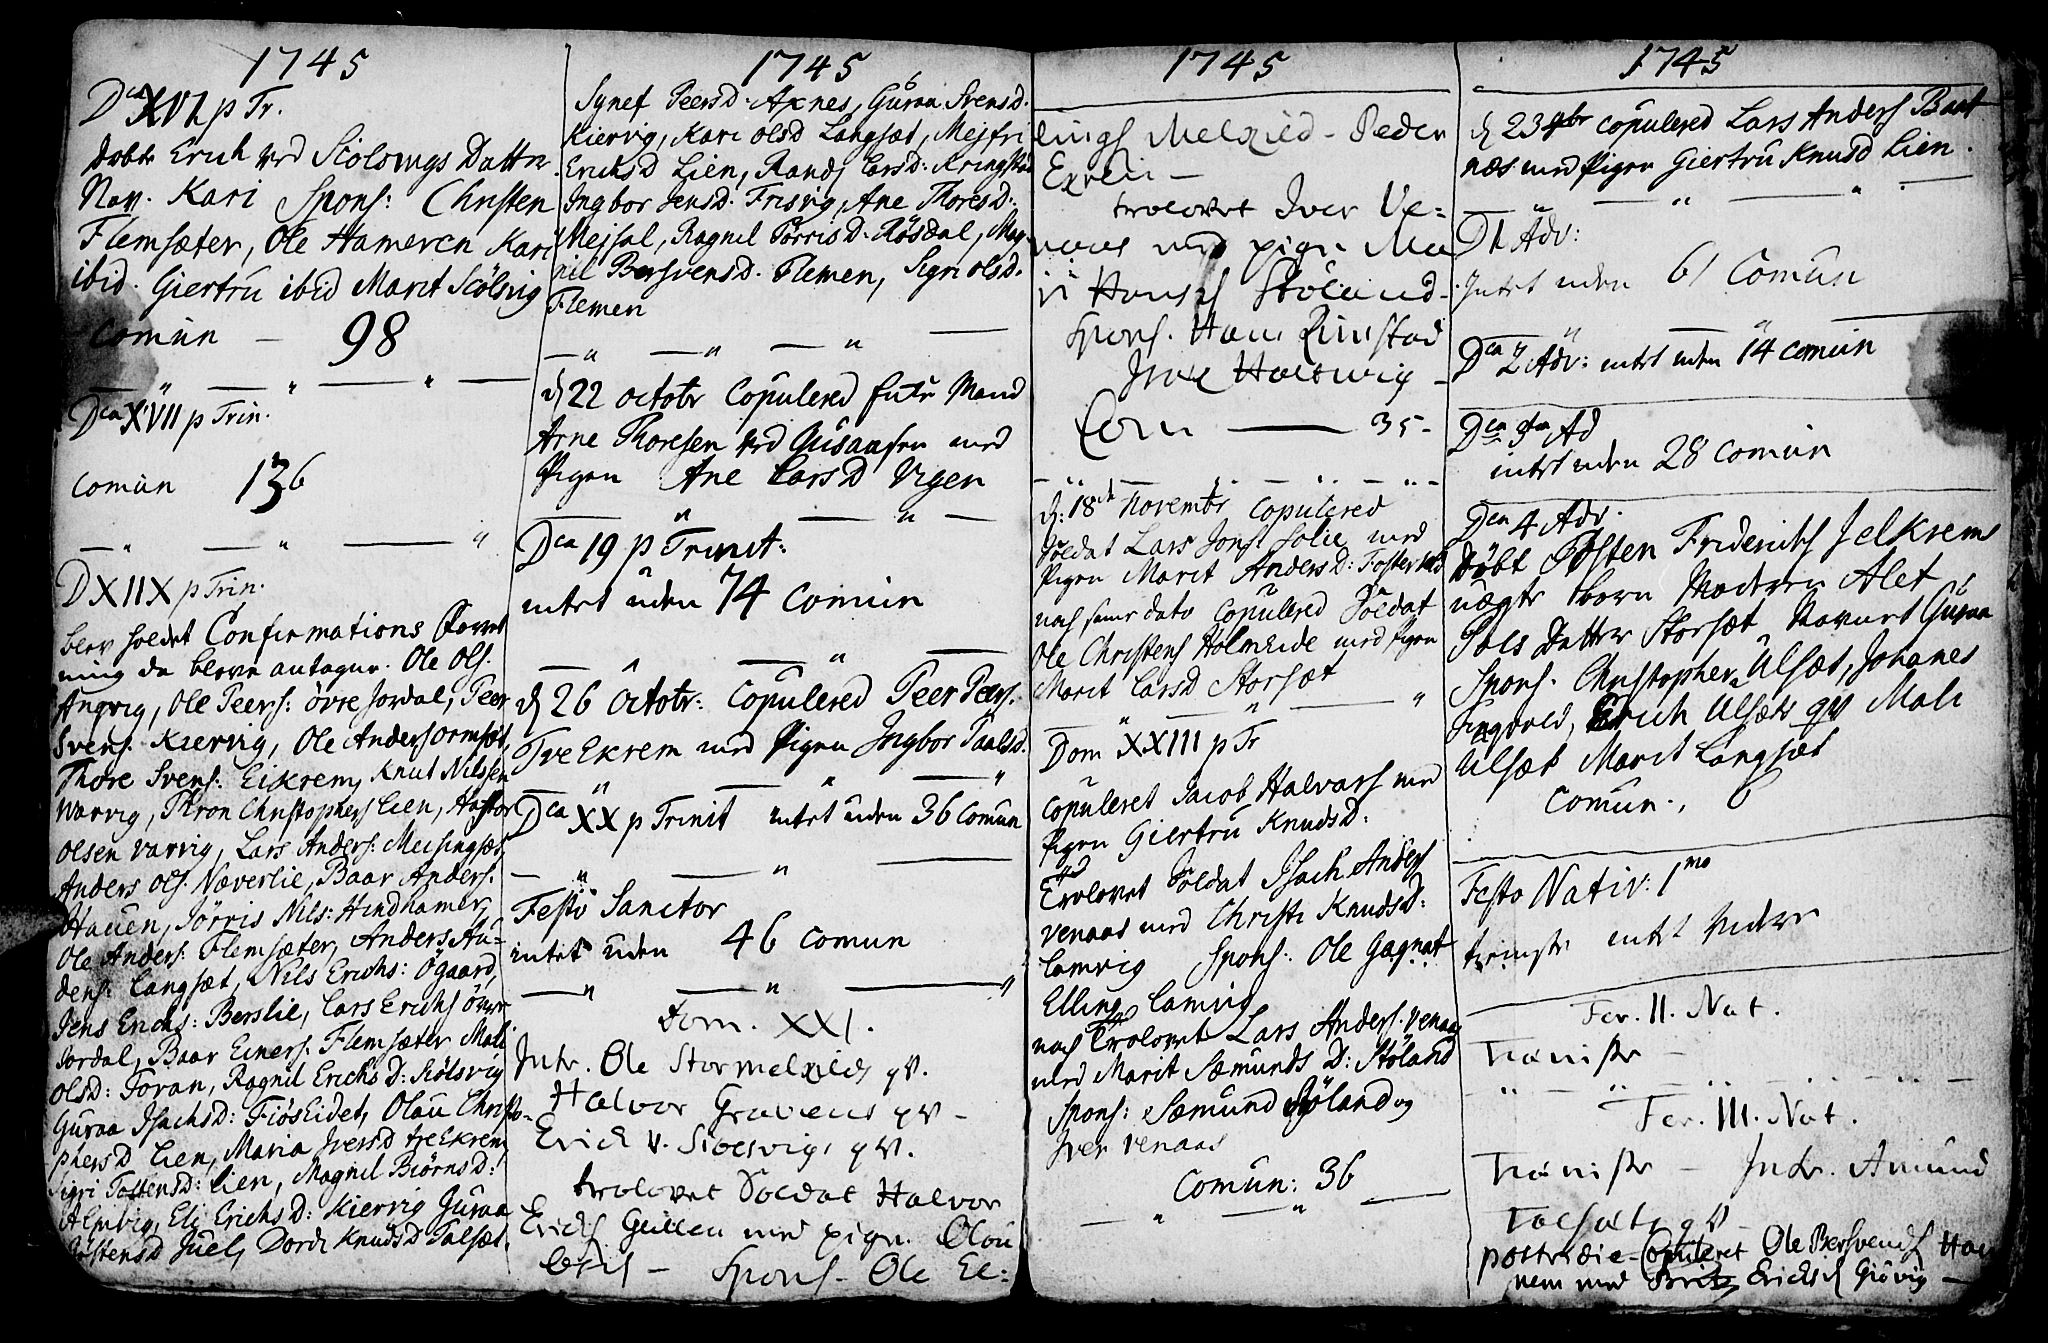 1745
Dca XVI p Tr.
döbt Erich ved Siölsvigs Datter
Nav. Kari Spons: Christen
Flemsæter, Ole Hameren Kari
ibid. Giertru ibid Marit Siölsvig
comun — 98
Dca XVII p Trin.
comun 136
D XIIX p Trin.
blev holdet Confirmations Forret
ning da bleve antagne. Ole Ols.
Angvig, Ole Peers: övre Jordal, Peer
Svens. Kiervig, Ole Anders Ormset,
Thore Svens: Eikrem, Knut Nilssen
Warvig, Thron Christophers Lien, Hastor
Olsen Varvig, Lars Anders: Meisingset
Anders Ols. Næverlie, Baar Anders.
Hauen, Jörris Nils: Hindhamer,
Ole Anders: Flemsæter, Anders Au-
dens: Langsæt, Nils Erichs: Ögaard,
Jens Erichs: Berslie, Lars Erichs övre
Jordal, Baar Einers. Flemsæter Mali
Olsd: Torvan, Ragnil Erichs D: Siölsvig
Guraa Isachsd: Fiöseidet, Olau Christo-
phersd Lien, Maria Iversd Eikrem
Sigri Tostensd: Lien, Magnil Biörnsd:
Almvig, Eli Erichs D: Kiervig Guraa
Töstensd Juel, Dordi Knudsd Talset.
1745
Synef Peersd. Axnes, Guraa Svensd.
Kiervig, Kari Olsd Langsæt, Mejfri
Erichsd Lien, Randi Larsd: Kringstad
Ingbor Jensd. Frisvig, Ane Thoresd:
Mejsal, Ragnil Jörrisd. Rösdal, Mag-
nil Bersvensd. Flemen, Sigri Olsd.
Flemen
d 22 octobr Copulered Mand
Arne Thoresen ved med
Pigen Ane Larsd Vigen
Dca 19 p Trinit:
intet uden 74 comun
d 26 octobr: Copulered Peer Peers.
Tveekrem med Pigen Ingbor Paalsd.
Dca XX p Trinit intet uden 36 comun
Festo Sanctor
intet uden 46 comun
Dom. XXI.
Intr. Ole Stormelxlids qv.
Halvor Gravens qv —
Erich v. Siölsvig, qv.
trolovet Soldat Halvor
Erichs Gullen med pigen Olou
— Spons — Ole El:
1745
lings Melxlid — Peder
Exlii —
trolovet Iver Ve=
naas med pigen Ma
ri Hansd Stöland —
Spons. Hans Rimstad
Iver Holtwig —
Com — 35 —
d: 18de Novembr copulered
Soldat Lars Jons: Solie med
Pigen Marit Anders D:
nok same dato copulered Soldat
Ole Christens Holmeide med Pigen
Marit Larsd Storsæt
Dom XXIII p Tr
copuleret Jacob Halvars med
Pigen Giertru Knudsd:
Trolovet Soldat Isach Anders
Venaas med Christi Knudsd:
Lamvig Spons: Ole Gagnat
Elling Lamvig
nok Trolovet Lars Anders. Venaas
med Marit Sæmunds D: Stöland
Spons: Sæmund Stöland og
Iver Venaas
Comun: 36
1745
d 23 9br copulered Lars Anders Baat
næs med Pigen Giertru Knusd Lien.
D 1 Adv:
Intet uden 61 Comun
Dca 2 Adv: intet uden 14 comun
Dca 3tia Ad
intet uden 28 comun
Dca 4 Adv.
Döbt Tosten Friderichs Jelkrems
uægte barn Moderen Alet
Pols Datter Storsæt Navnet Guraa
Spons. Christopher Ulsæt, Johanes
Tingvold, Erich Ulsæts qv Mali
Ulsæt Marit Langsæt
Comun., 6
Festo Nativ: 1mo
intet videre
Fer. II. Nat.
Fer. III. Nat.
— Intr. Amund
Talsæts qv
postridie — Copuleret Ole Bersvends Ha
nem med Brit Erichsd Giövig —